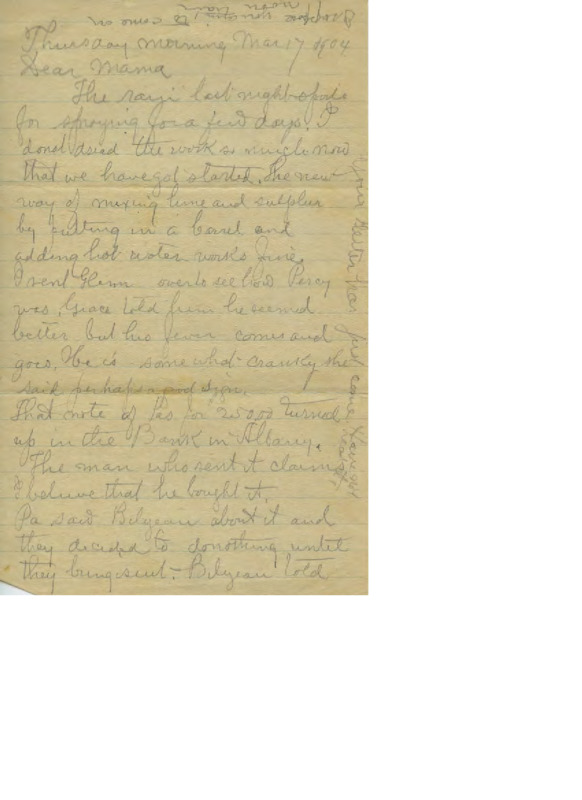 noon train
to come on
Thursday morning Mar 17 1904
Dear Mama
The rain last night spoils
for spraying for a few days. I
donot dread the work so much now
that we have got started. The new
way of mixing lime and sulphur
by putting in a barrel and
adding hot water works fine.
I sent Glenn over to see how Percy
was, Grace told him he seemed
better but his fever comes and
goes. He is some what cranky she
said perhaps a good sign.
That note of Pas for 250.00 turned
up in the Bank in Albany.
The man who sent it claims
I believe that he bought it.
Pa saw Bilyeau about it and
they decided to donothing until
they bring suit - Bilyeau told
Your letter has just come